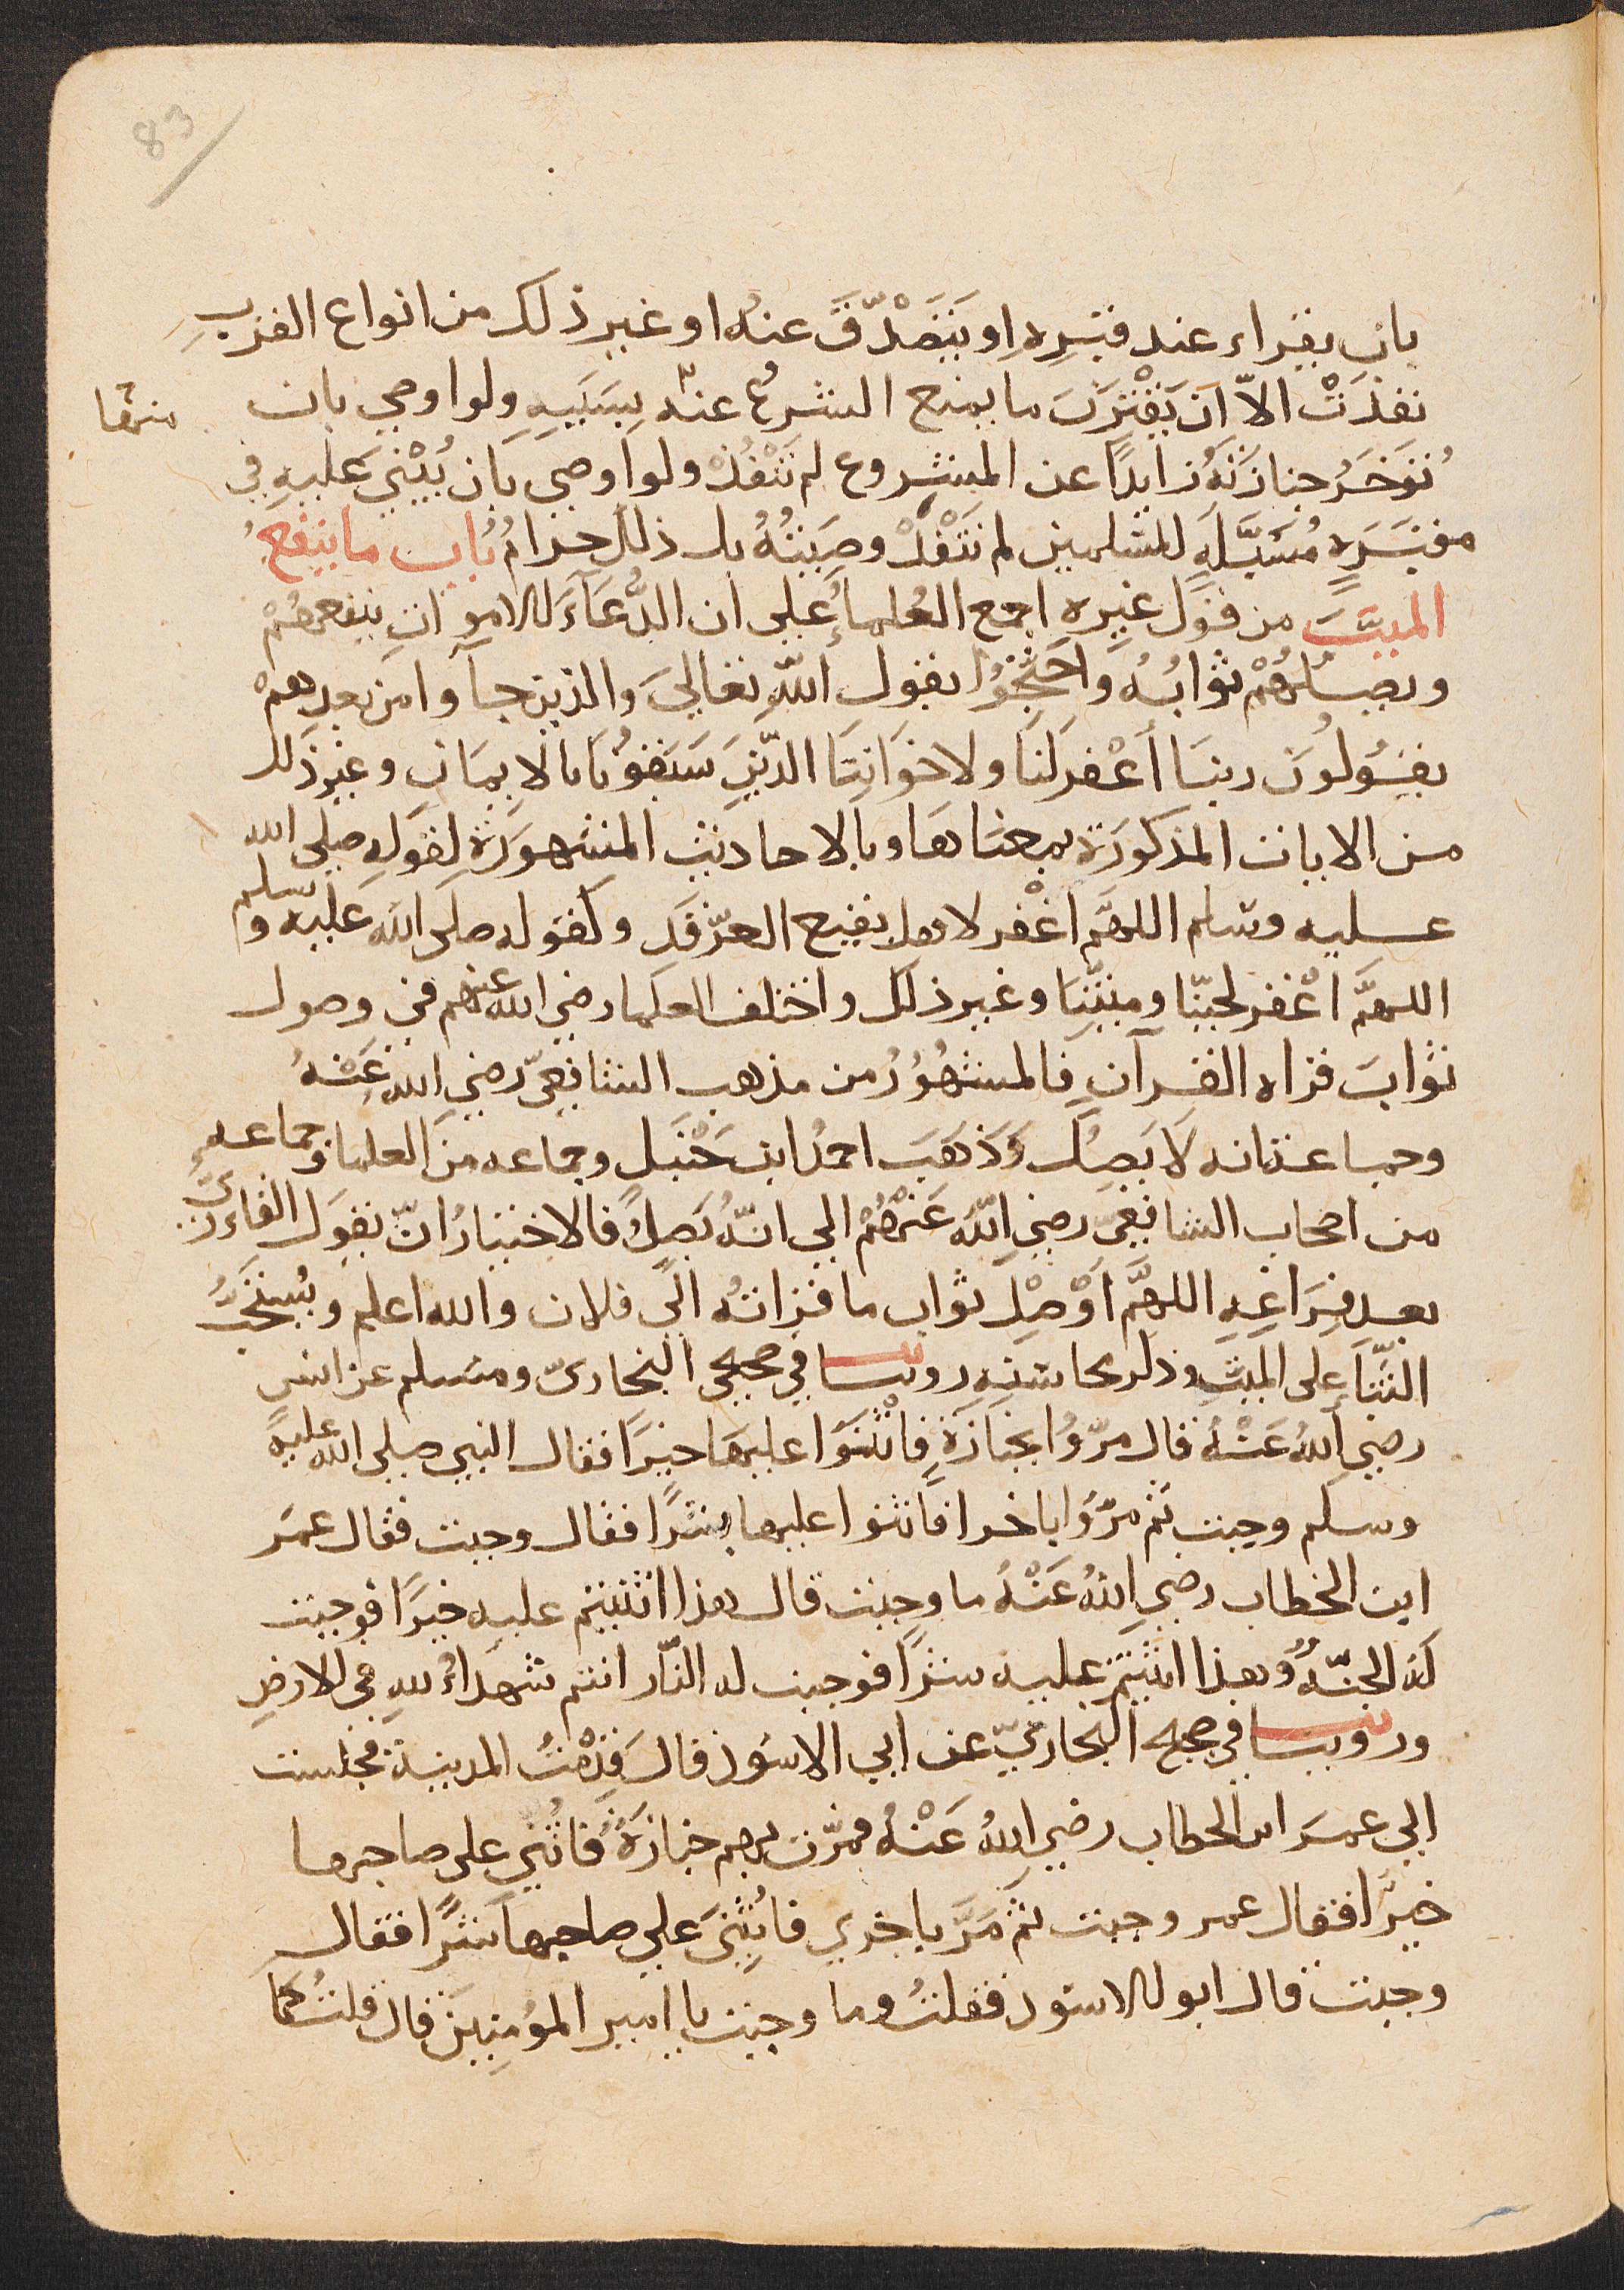 83
بان يقراء عند قبره او يتصدق عنه او غير ذلك من انواع القرب
نفذت الّا ان يقترن ما يمنع الشرع عنه بسببه ولو اوصي بان
تؤخر جنازته زايدًا عن المشروع لم تنفذ ولو اوصي بان يبني عليه في
مقبرة مسبلة للمسلمين لم تنفذ وصيته بل ذلك حرام باب ما ينفع
الميت من قول غيره اجمع العلماء علي ان الدعاء للاموات ينفعهم
ويصلهم ثوابه واحتجوا بقول الله تعالي والذين جآوا من بعدهم
يقولون ربنا أغفر لنا ولاخواننا الذين سبقونا بالايمان وغير ذلك
من الايات المذكورة بمعناها وبالاحاديث المشهورة لقوله صلي الله
عليه وسلم اللهم اغفر لاهل بقيع الغرقد وكقوله صلي الله عليه وسلم
اللهم اغفر لحينا وميتنا وغير ذلك واختلف العلما رضي الله عنهم في وصول
ثواب قراه القرآن فالمشهور من مذهب الشافعي رضي الله عنه
وجماعة انه لا يصل وذهب احمد ابن حنبل وجماعه من العلما وجماعه
من اصحاب الشافعي رضي الله عنهم الي انه يصل فالاختيار ان يقول القارئ
بعد فراغه اللهم اوصل ثواب ما قراته الي فلان والله اعلم ويستحب
الثنا علي الميت وذكر محاسنه روينا في صحيحي البخاري ومسلم عن انس
رضي الله عنه قال مروا بجنازة فاثنوا عليها خيرًا فقال النبي صلي الله عليه
وسلم وجبت ثم مروا باخرا فاثنوا عليها شرًا فقال وجبت فقال عمر
ابن الخطاب رضي الله عنه ما وجبت قال هذا اثنيتم عليه خيرًا فوجبت
له الجنة وهذا اثنيتم عليه شرًا فوجبت له النار انتم شهداء لله في الارض
وروينا في صحيح البخاري عن ابي الاسود قال قدمت المدينة فجلست
الي عمر ابن الخطاب رضي الله عنه فمرت بهم جنازة فاثني علي صاحبها
خيرًا فقال عمر وجبت ثم مر باخري فاثني علي صاحبها شرًا فقال
وجبت قال ابو الاسود فقلت وما وجبت يا امير المؤمنين قال قلت كما